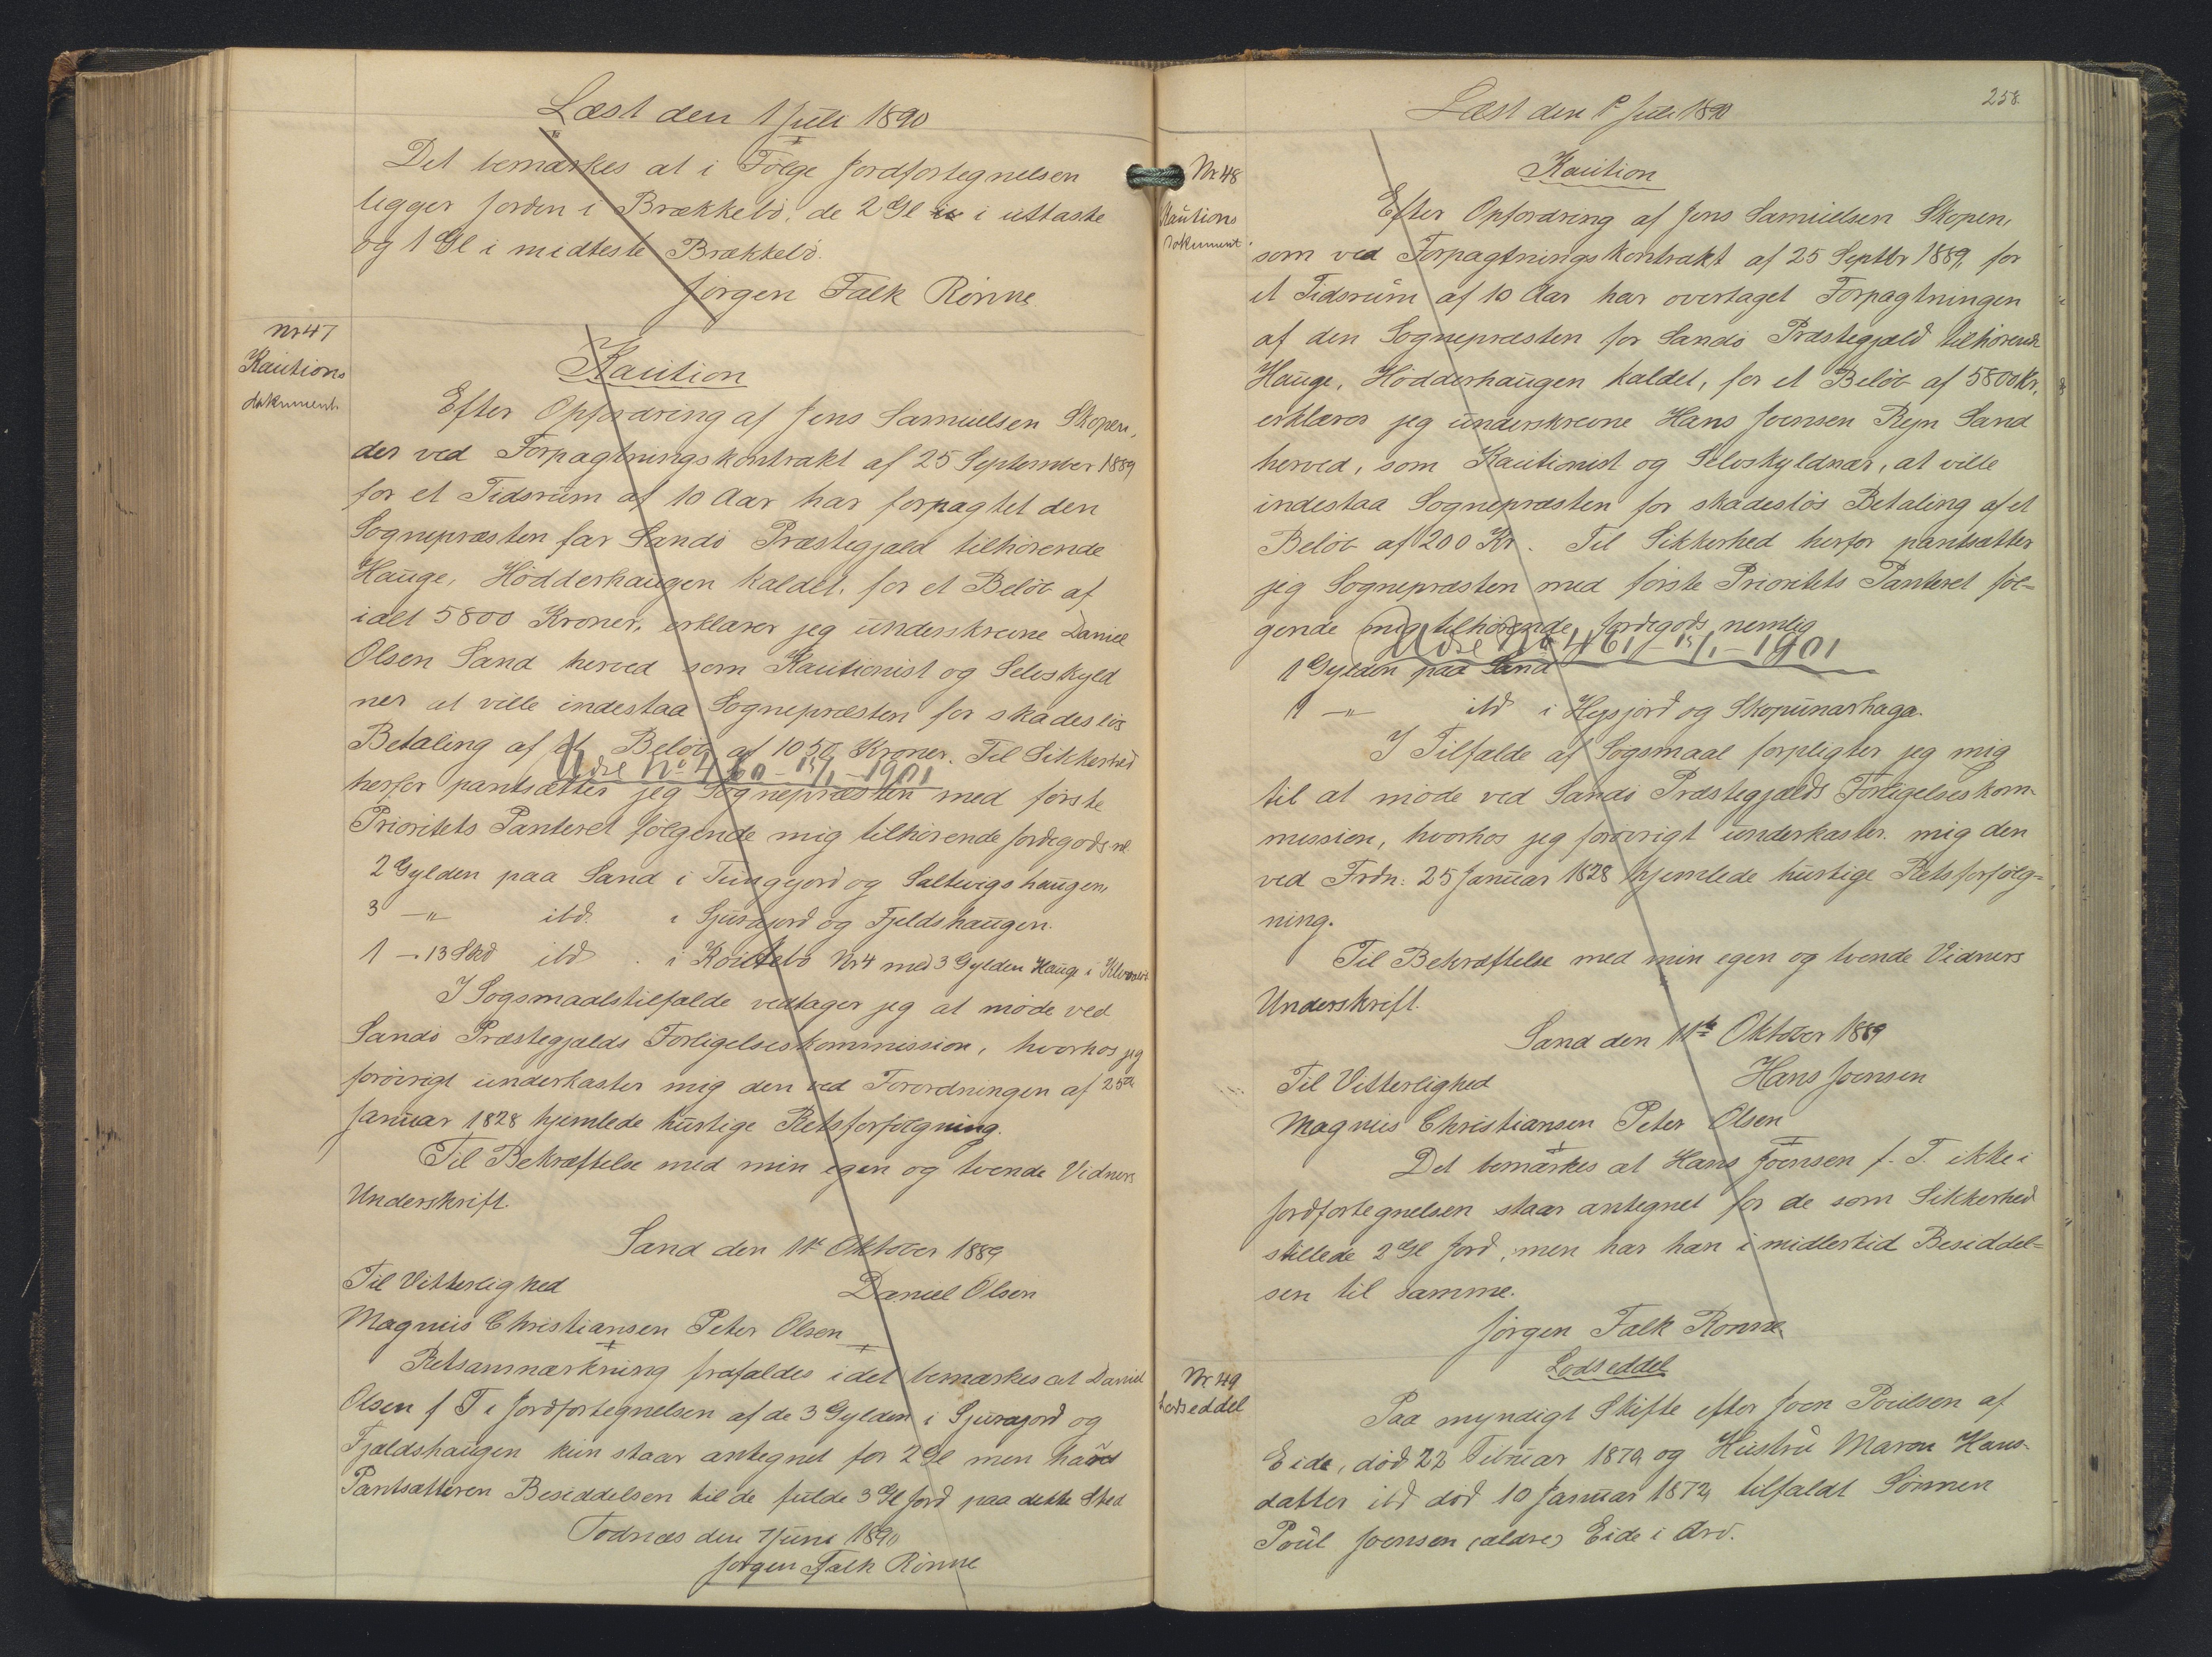 Læst den 1 Juli 1890
Det bemærkes at i Følge Jordfortegnelsen
ligger Jorden i Brækkebø, de 2 Gl i uttaste
og 1 Gl i midteste Brækkebø.
Jørgen Falk Rønne
Nr 47
Kautions
dokument.
Kaution
Efter Opfordring af Jens Samuelsen Skopen,
der ved Forpagtningskontrakt af 25 September 1889
for et Tidsrum af 10 Aar har forpagtet den
Sognepræsten for Sandø Præstegjæld tilhørende
Hauge, Hødderhaugen kaldet, for et Beløb af
ialt 5800 Kroner, erklærer jeg underskrevne Daniel
Olsen Sand herved som Kautionist og Selvskyld
ner at ville indestaa Sognepræsten for skadesløs
Betaling af et Beløb af 1050 Kroner. Til Sikkerhed
Udsl No 460 - 15/1 - 1901
herfor pantsætter jeg Sognepræsten med første
Prioritets Panteret følgende mig tilhørende Jordegods nl
2 Gylden paa Sand i Tungejord og Saltvigshaugen,
3 -"- ibd. i Sjurajord og Fjeldshaugen.
1 - 13 Skd ibd. i Nr 4 med 3 Gylden Hauge i
I Sogsmaalstilfælde vedtager jeg at møde ved
Sandø Præstegjælds Forligelseskommission, hvorhos jeg
forøvrigt underkaster mig den ved Forordningen af 25de
Januar 1828 hjemlede hurtige Retsforfølgning.
Til Bekræftelse med min egen og tvende Vidners
Underskrift.
Sand den 11te Oktober 1889
Til Vitterlighed Daniel Olsen
Magnus Christiansen Peter Olsen
Retsanmærkning frafaldes idet bemærkes at Daniel
Olsen f T i Jordfortegnelsen af de 3 Gylden i Sjurajord og
Fjældshaugen kun staar antegnet for 2 Gl men har
Pantsætteren Besiddelsen til de fulde 3 Gl Jord paa dette Sted
Todnæs den 7 Juni 1890
Jørgen Falk Rønne
Læst den 1 Juli 1890
258.
Nr 48
Kautions
dokument.
Kaution
Efter Opfordring af Jens Samuelsen Skopen,
som ved Forpagtningskontrakt af 25 Septbr 1889, for
et Tidsrum af 10 Aar har overtaget Forpagtningen
af den Sognepræsten for Sandø Præstegjæld tilhørende
Hauge, Hødderhaugen kaldet, for et Beløb af 5800 Kr,
erklærer jeg underskrevne Hans Joensen Rejn Sand
herved, som Kautionist og Selvskyldnær, at ville
indestaa Sognepræsten for skadesløs Betaling af et
Beløb af 1200 Kr. Til Sikkerhed herfor pantsætter
jeg Sognepræsten med første Prioritets Panteret føl-
gende mig tilhørende Jordegods nemlig
Udsl No 461 - 15/1 - 1901
1 Gylden paa Sand
1 -"- ibd i Hegsjord og Skopunarhaga.
I Tilfælde af Sogsmaal forpligter jeg mig
til at møde ved Sandø Præstegjælds Forligelseskom-
mission, hvorhos jeg forøvrigt underkaster mig den
ved Frdn. 25 Januar 1828 hjemlede hurtige Retsforfølg-
ning.
Til Bekræftelse med min egen og tvende Vidners
Underskrift.
Sand den 11te Oktober 1889
Til Vitterlighed Hans Joensen
Magnus Christiansen Peter Olsen
Det bemærkes at Hans Joensen f. T. ikke i
Jordfortegnelsen staar antegnet for de som Sikkerhed
stillede 2 Gl Jord, men har han imidlertid Besiddel-
sen til samme.
Jørgen Falk Rønne
Nr 49
Lodseddel
Lodseddel
Paa myndigt Skifte efter Joen Poulsen af
Eide, død 22 Februar 1879 og Hustru Maren Hans-
datter ibd død 10 Januar 1872 tilfaldt Sønnen
Poul Joensen (ældre) Eide i Arv.